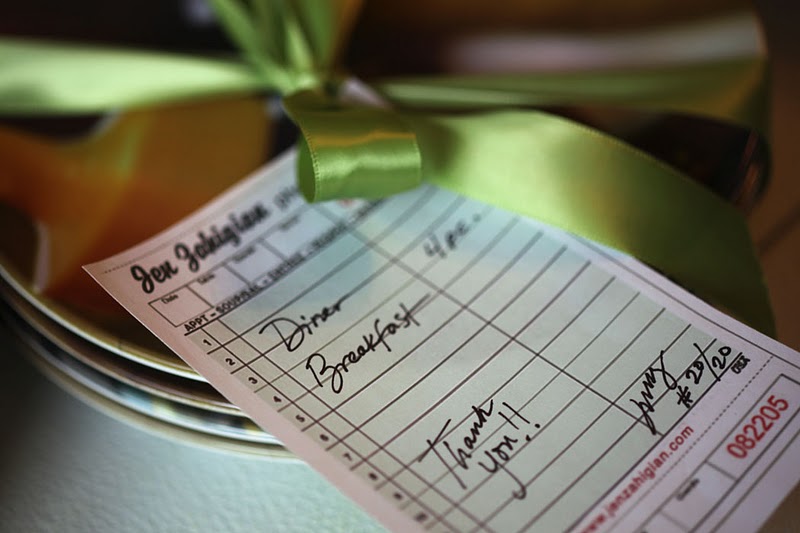 Jen Zahigian
Date Table
APPT - SOUP/SAL - ENTREE -
4 pc.
1
2 Diner
3 Breakfast
4
5
6
7 Thank
8 you!!
9
10
#20/20
USA
www.jenzahigian.com
082205